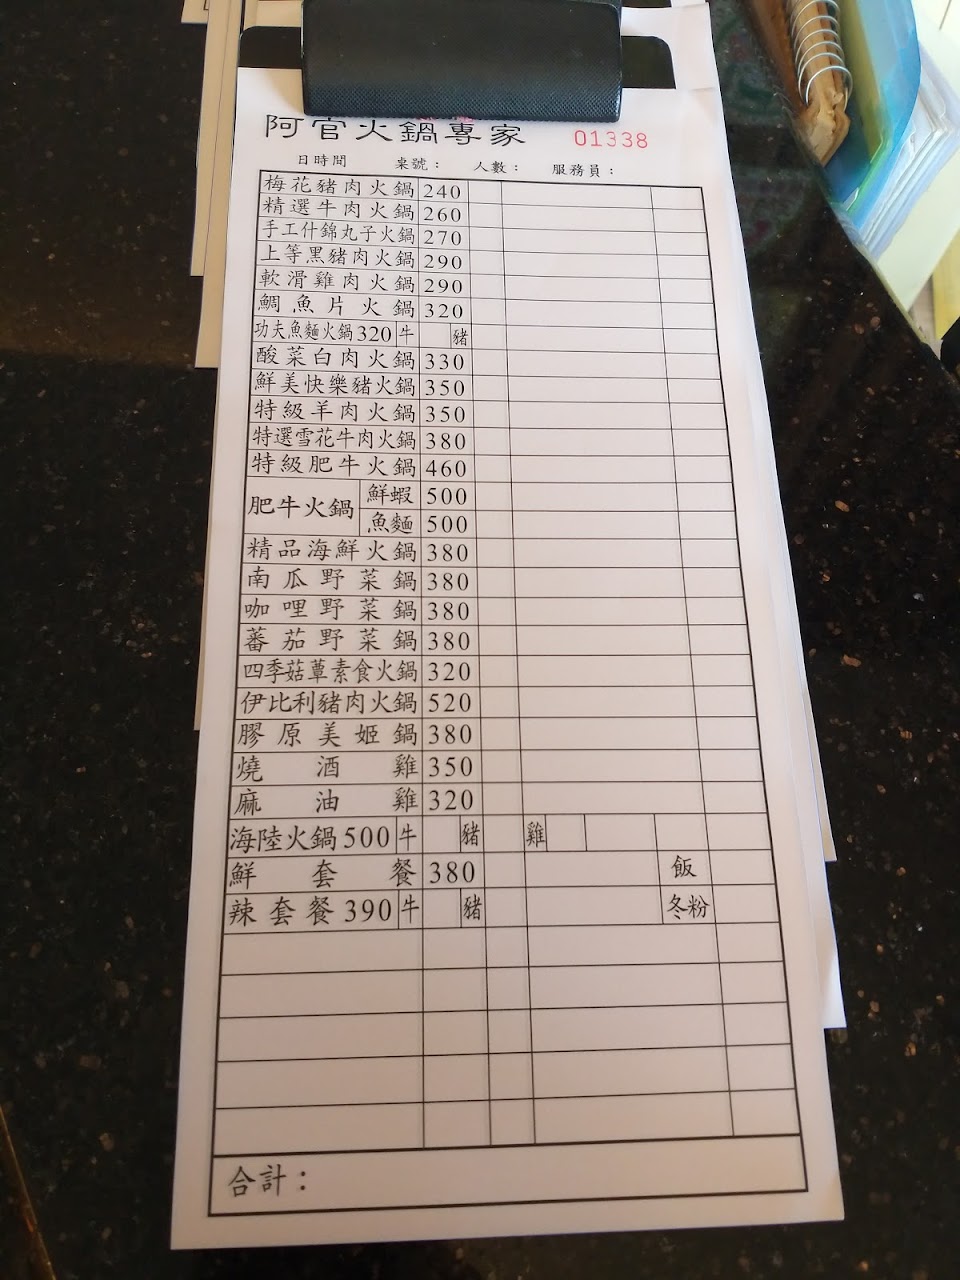 阿官火鍋專家 01338
日時間 桌號： 人數： 服務員：
梅花豬肉火鍋 240
精選牛肉火鍋 260
手工什錦丸子火鍋 270
上等黑豬肉火鍋 290
軟滑雞肉火鍋 290
鯛魚片火鍋 320
功夫魚麵火鍋 320 牛 豬
酸菜白肉火鍋 330
鮮美快樂豬火鍋 350
特級羊肉火鍋 350
特選雪花牛肉火鍋 380
特級肥牛火鍋 460
肥牛火鍋 鮮蝦 500
魚麵 500
精品海鮮火鍋 380
南瓜野菜鍋 380
咖哩野菜鍋 380
蕃茄野菜鍋 380
四季菇蕈素食火鍋 320
伊比利豬肉火鍋 520
膠原美姬鍋 380
燒酒雞 350
麻油雞 320
海陸火鍋 500 牛 豬 雞
鮮套餐 380 飯
辣套餐 390 牛 豬 冬粉
合計：